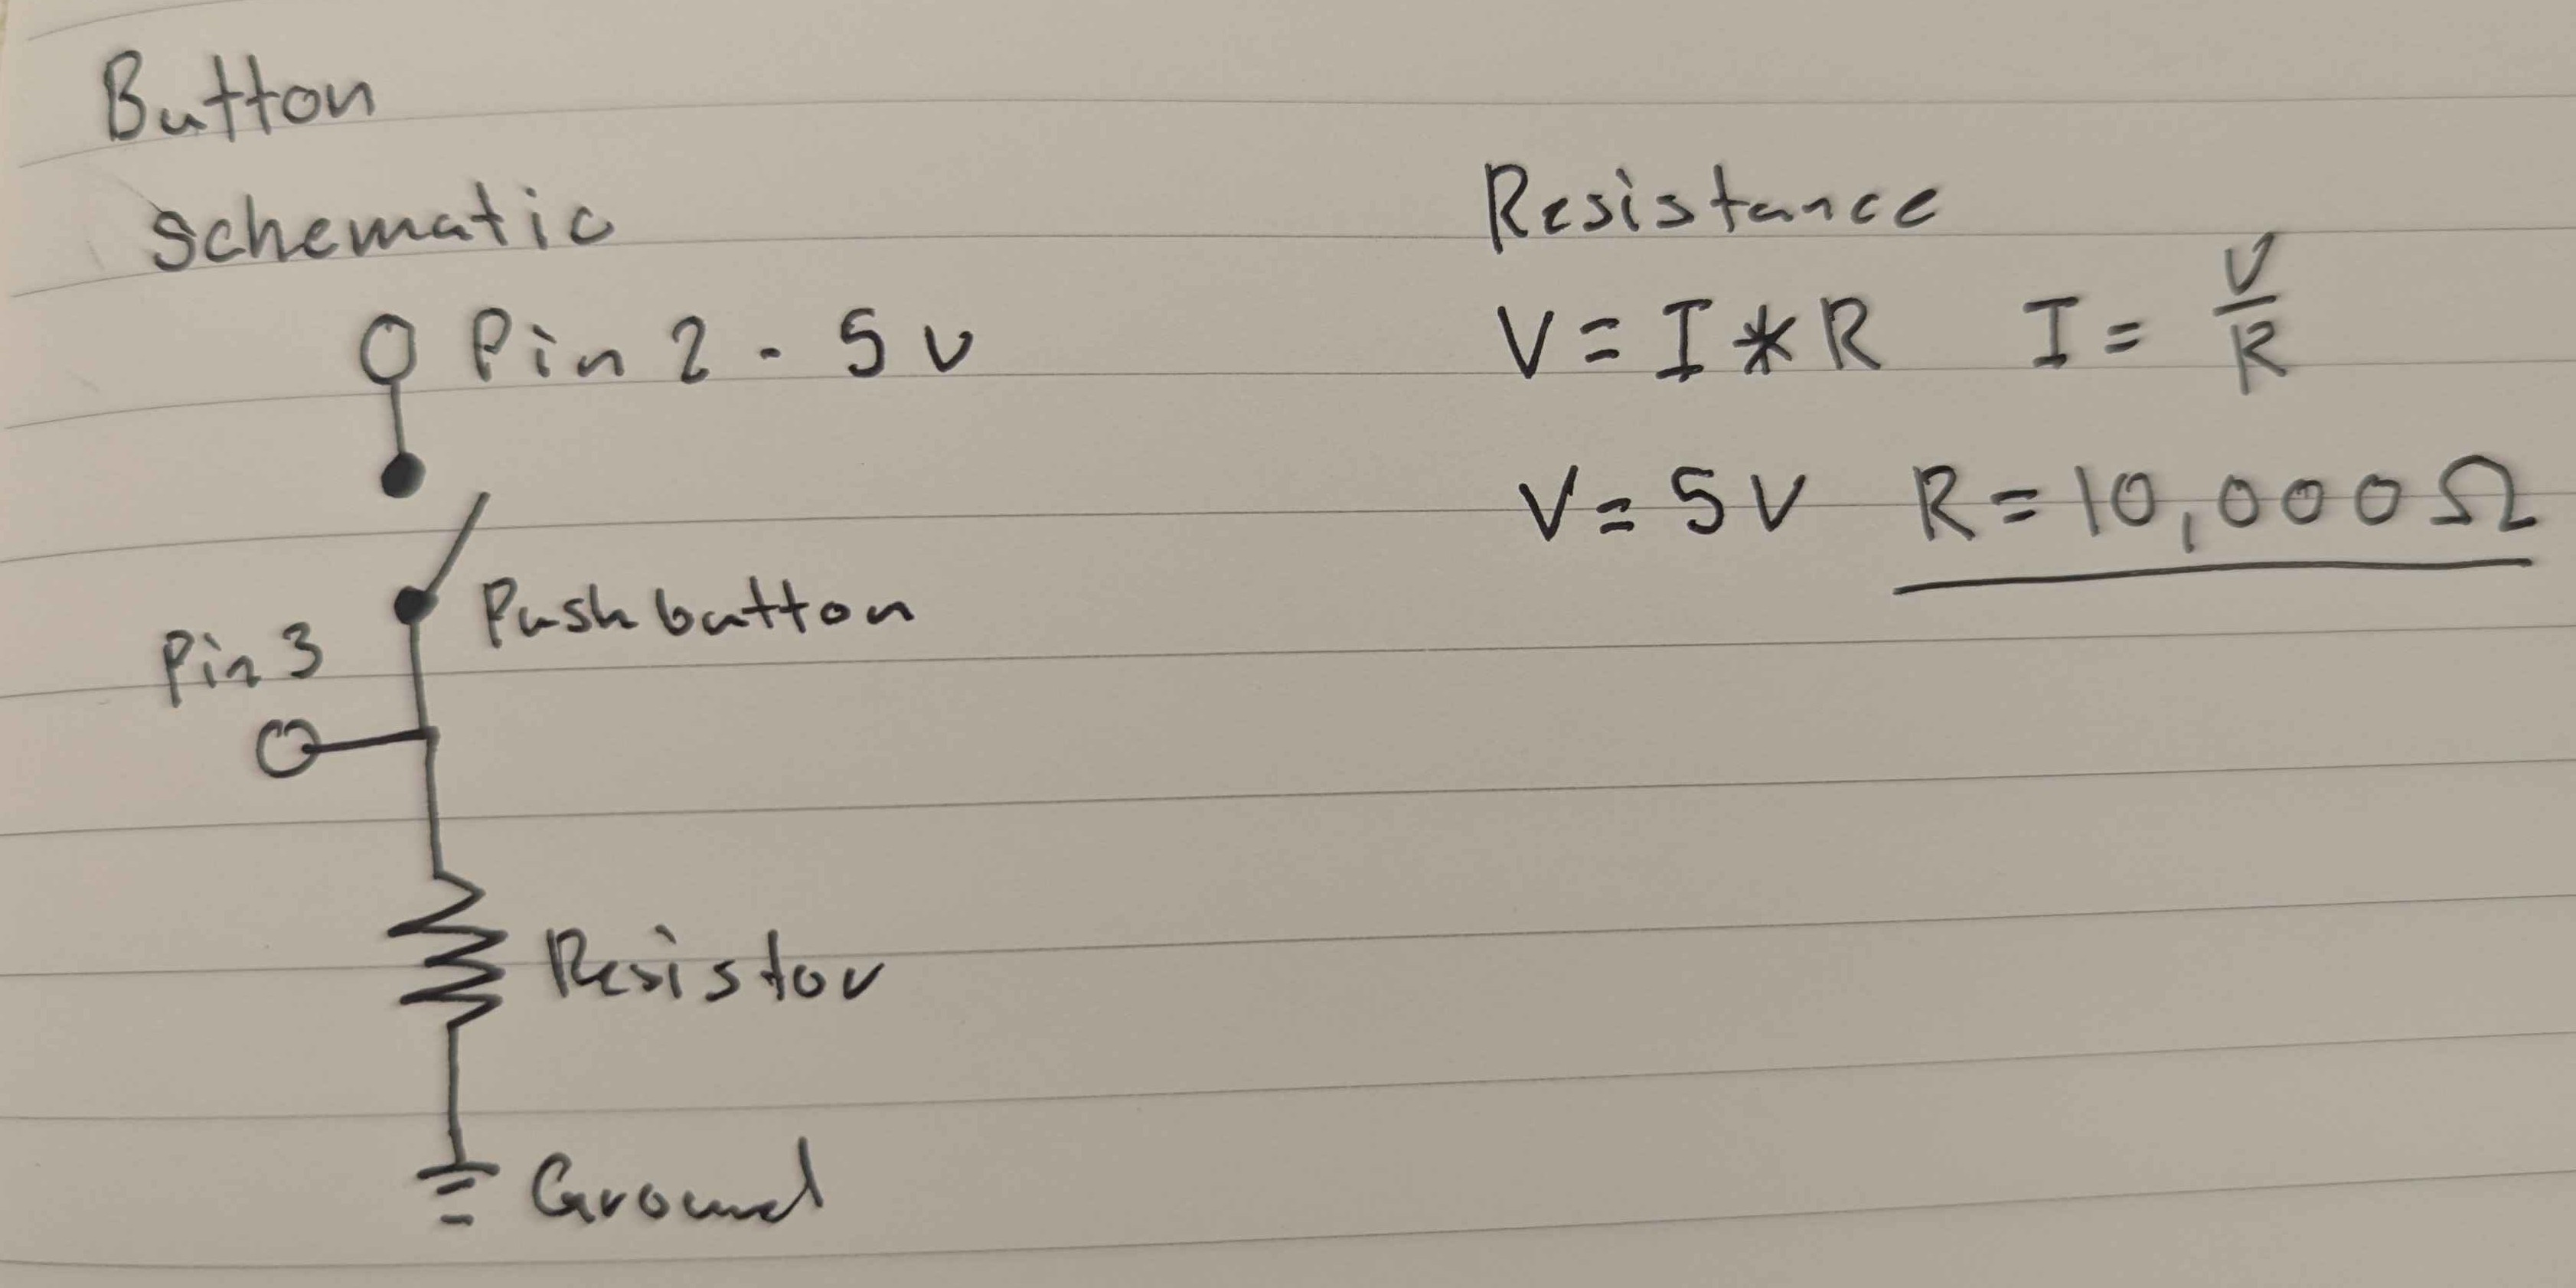 Button
Schematic
Pin 2 - 5v
Pushbutton
Pin 3
Resistor
Ground
Resistance
V = I * R I = V/R
V = 5V R = 10,000Ω